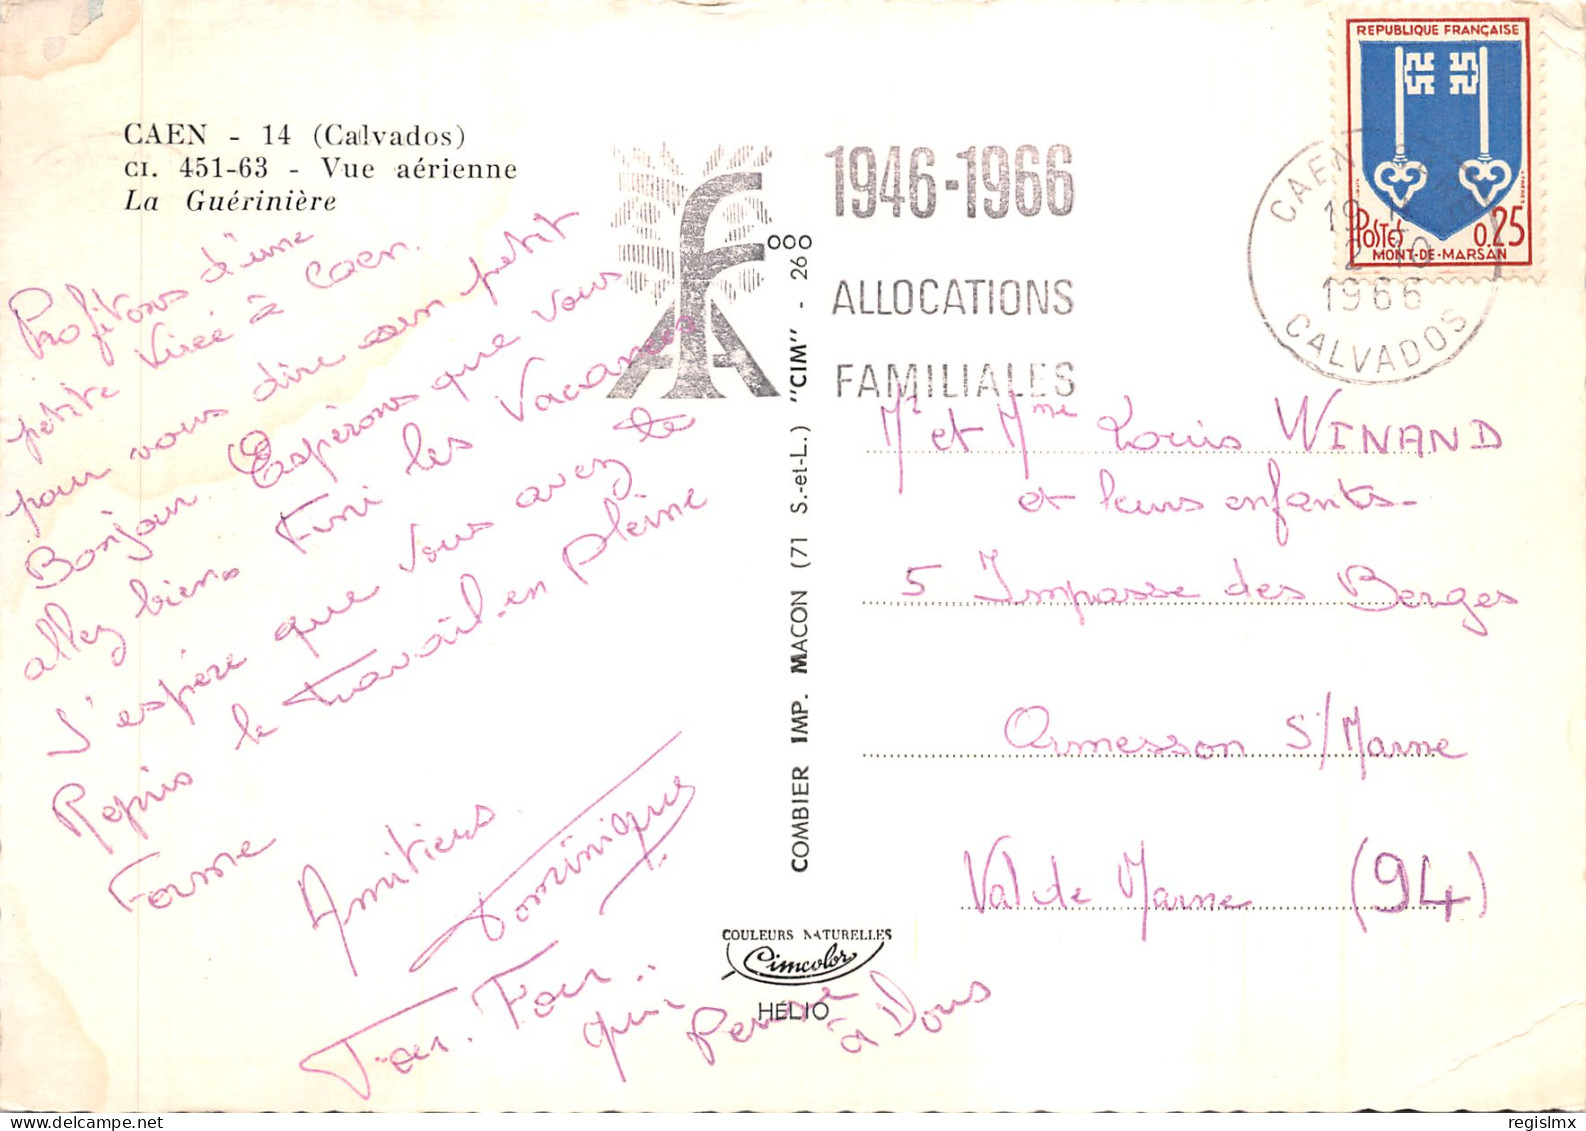 CAEN - 14 (Calvados)
CI. 451-63 - Vue aérienne
La Guérinière
Profitons d'une
petite virée à Caen.
pour vous dire un petit
Bonjour. Espérons que vous
allez biens Fini les Vacances
J'espère que vous avez
Repris le travail en pleine
Forme
Amitiers
Dominique
qui pense à Vous
1946-1966
ALLOCATIONS
FAMILIALES
REPUBLIQUE FRANÇAISE
POSTES 0.25
MONT-DE-MARSAN
CAEN
19 H
2-10
1966
CALVADOS
COMBIER IMP. MACON (71 S.-et-L.) "CIM" - 26 000
Mr et Mme Louis WINAND
et leurs enfants-
5 Impasse des Berges
Ormesson S/Marne
Val de Marne (94)
COULEURS NATURELLES
Cimcolor
HÉLIO
delcampe.net
regislmx